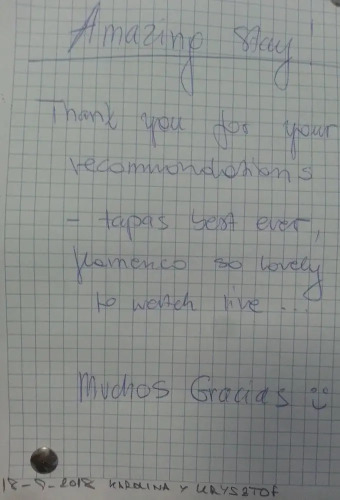 Amazing stay!
Thank you for your
recommondations
- tapas best ever,
flamenco so lovely
to watch live ...
Muchos Gracias :)
KAROLINA Y KRYSZTOF